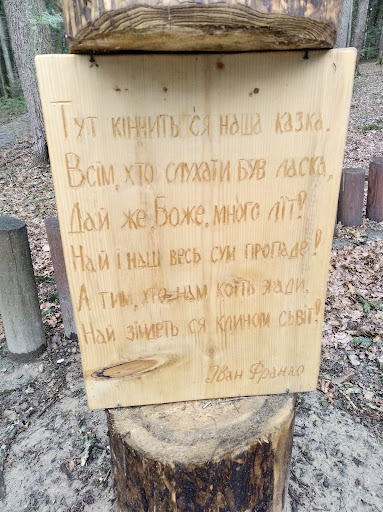 Тут кінчить ся наша казка.
Всїм, хто слухати був ласка,
Дай же, Боже, много лїт!
Най і наш весь сум пропаде!
А тим, хто нам копть зради,
Най зійдеть ся клином сьвіт!
Іван Франко